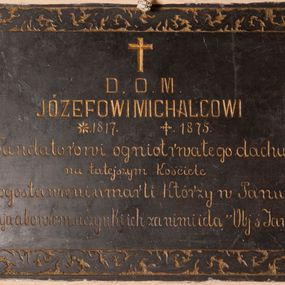 D. O. M.
JÓZEFOWI MICHALCOWI
✳.1817. +.1875.
Fundatorowi ogniotrwałego dachu
na tutejszym Kościele
umarli Którzy w Panu
za nimi ida "Obj s Jan